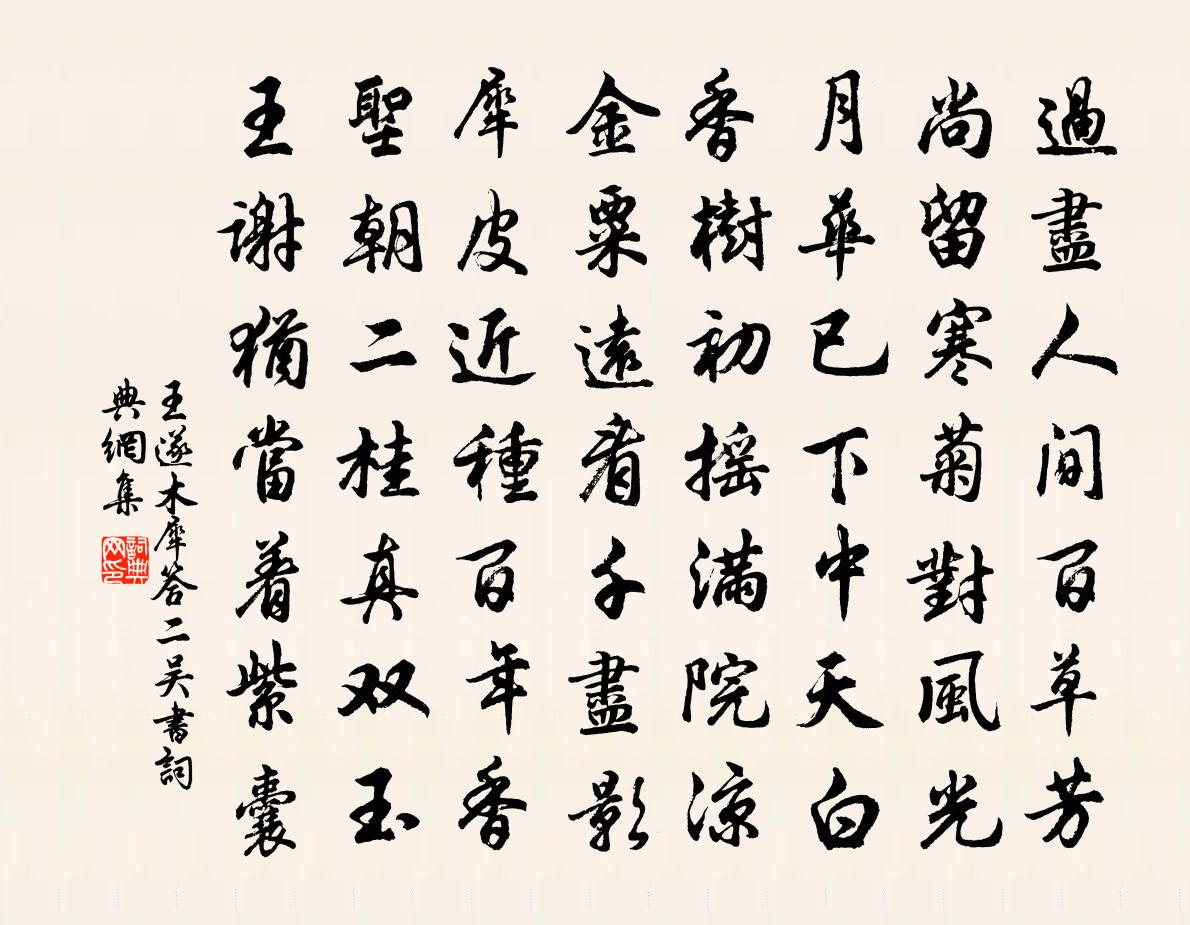 過盡人間百草芳
尚留寒菊對風光
月華已下中天白
香樹初摇滿院涼
金粟遠看千盡影
犀皮近種百年香
聖朝二桂真双玉
王謝猶當着紫囊
王遂木犀答二吴書詞
典網集
詞典网印